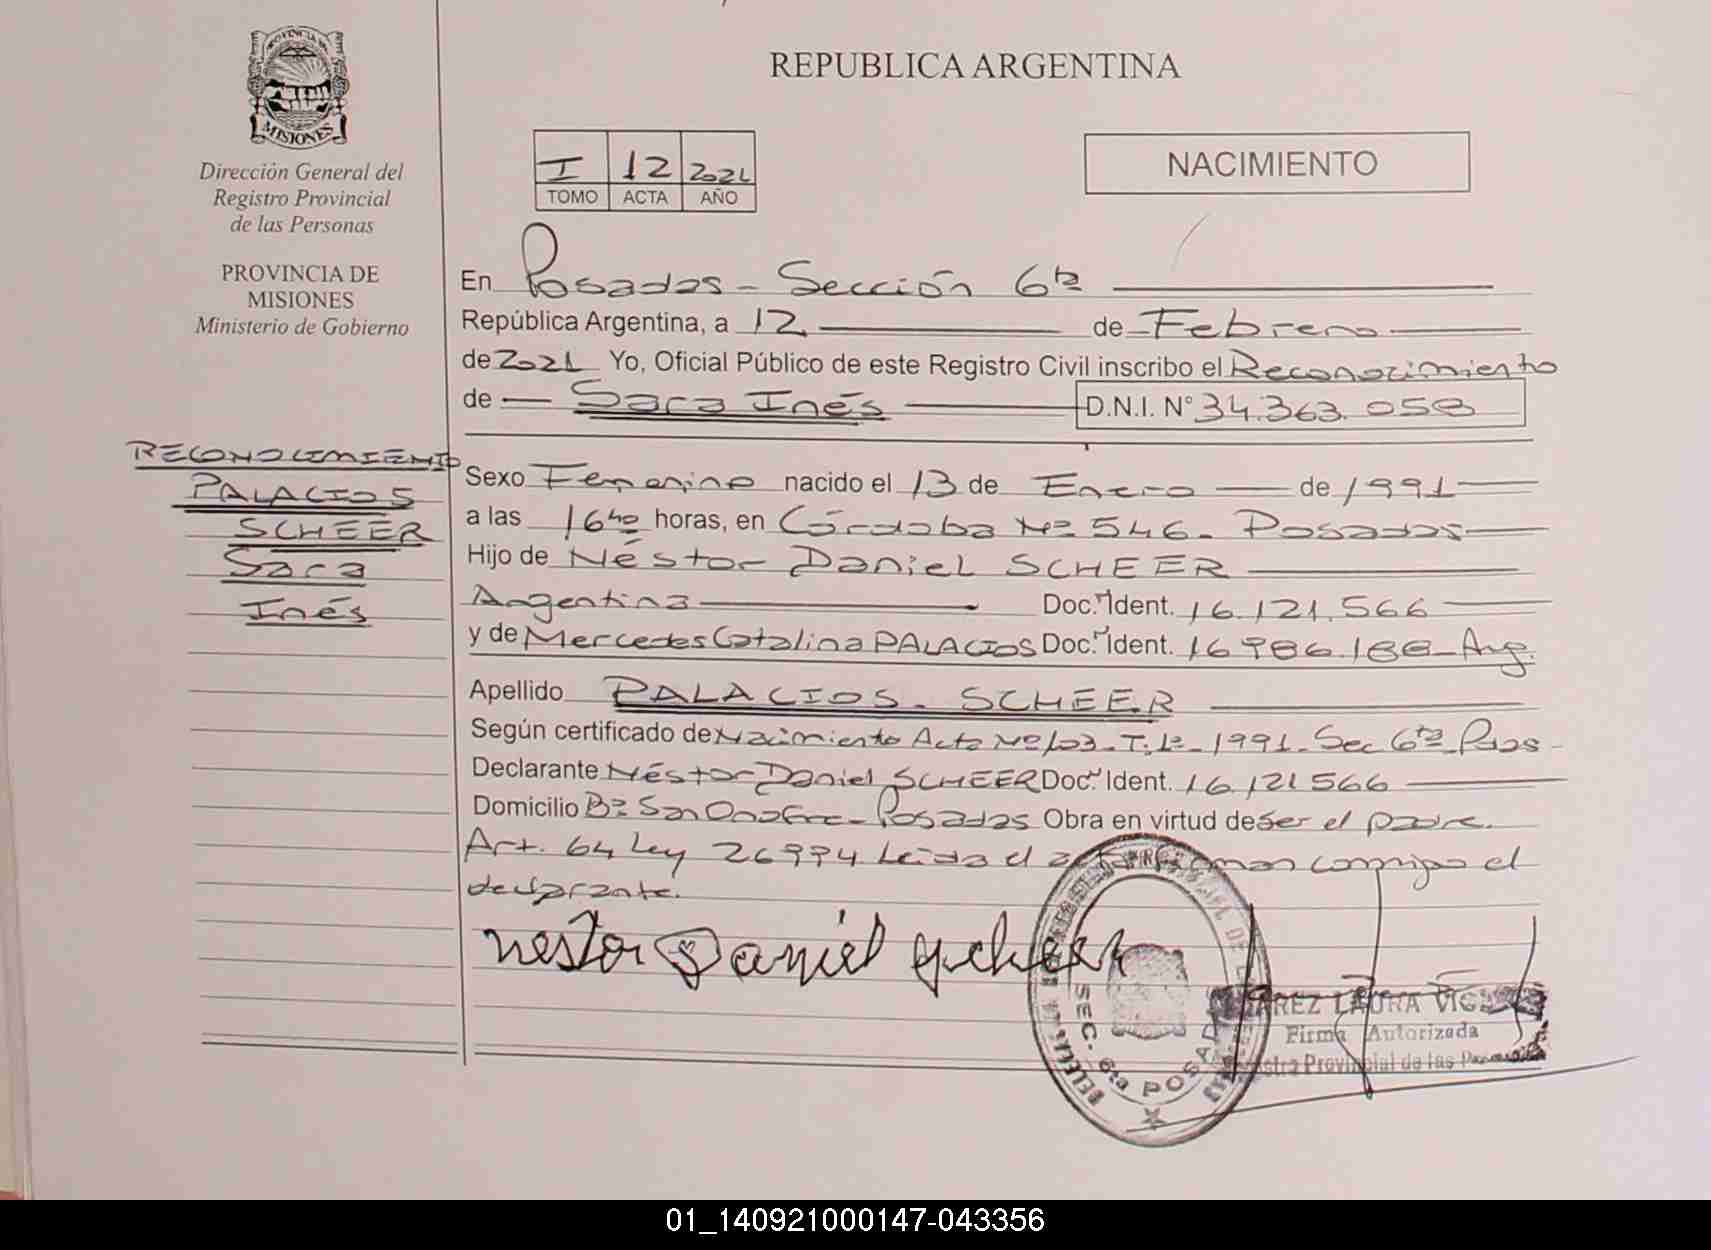 PROVINCIA DE
MISIONES
Dirección General del
Registro Provincial
de las Personas
PROVINCIA DE
MISIONES
Ministerio de Gobierno
RECONOCIMIENTO
PALACIOS
SCHEER
Sara
Inés
REPUBLICA ARGENTINA
I 12 2021
TOMO ACTA AÑO
NACIMIENTO
En Posadas - Sección 6ta
República Argentina, a 12 de Febrero
de 2021 Yo, Oficial Público de este Registro Civil inscribo el Reconocimiento
de Sara Inés D.N.I. N° 34.363.058
Sexo Femenino nacido el 13 de Enero de 1991
a las 16 40 horas, en Córdoba Nº 546 - Posadas
Hijo de Néstor Daniel SCHEER
Argentina Doc. Ident. 16.121.566
y de Mercedes Catalina PALACIOS Doc. Ident. 16 986.188 - Arg.
Apellido PALACIOS - SCHEER
Según certificado de Nacimiento Acta Nº 103 - T: 1º - 1991 - Sec 6ta Pdas -
Declarante Néstor Daniel SCHEER Doc. Ident. 16.121.566
Domicilio Bº San Onofre - Posadas Obra en virtud de ser el padre.
Art. 64 Ley 26994 Leída el acta firman conmigo el
declarante.
nestor Daniel scheer
SEC. 6ta POSADAS
LAURA
Firma Autorizada
Provincial de las
01_140921000147-043356